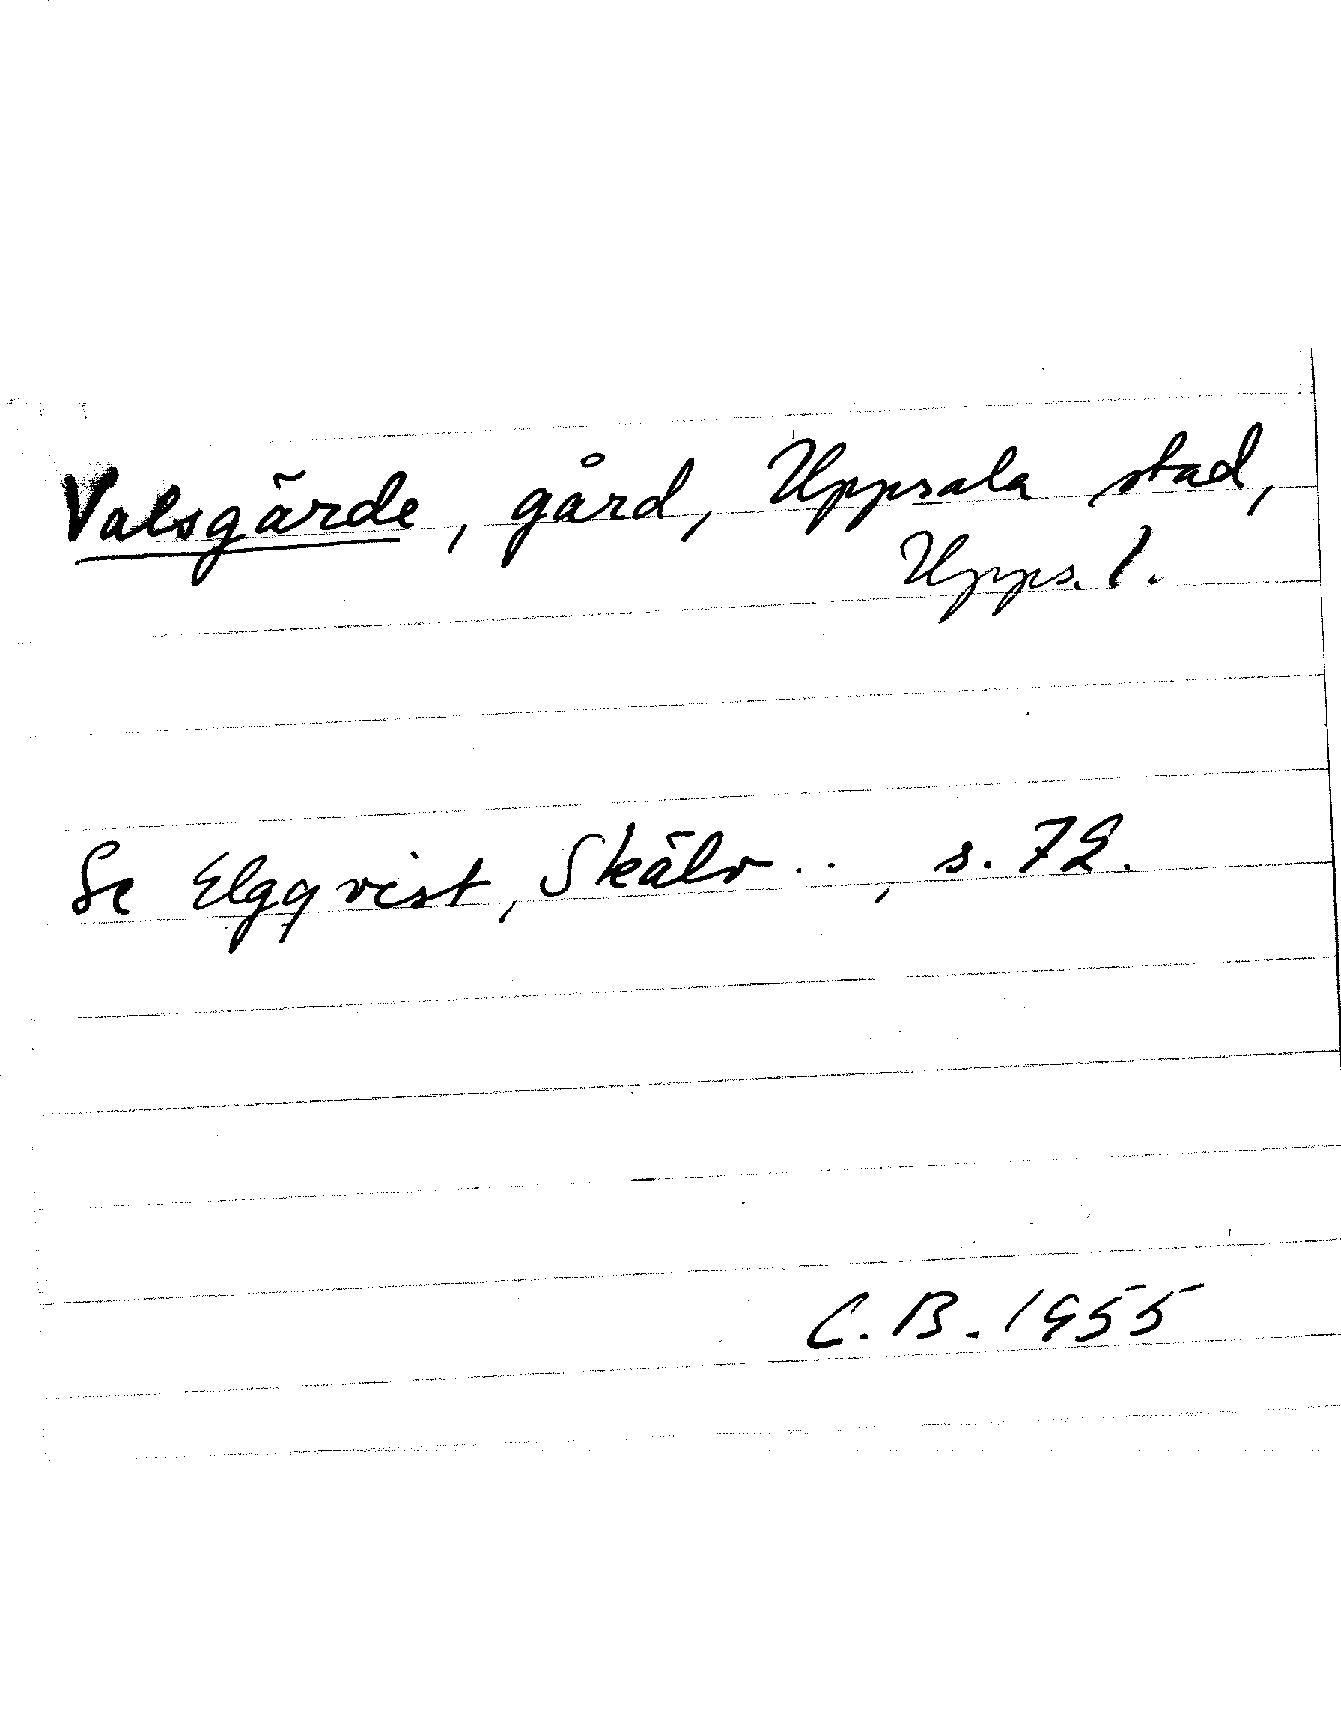 Valsgärde, gård, Uppsala stad,
Upps. l.
Se Elgqvist, Skälv .. , s. 72.
C. B. 1955